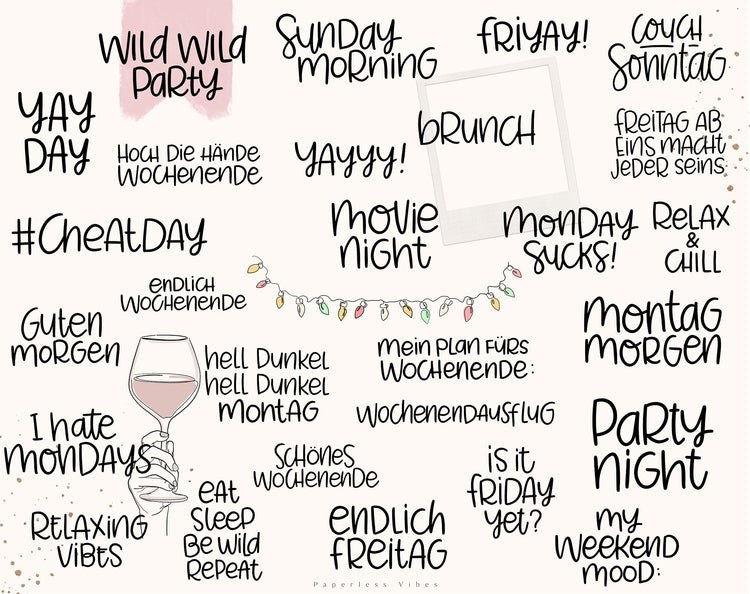 Wild Wild
Party
Sunday
morning
friyay!
Couch
Sonntag
Yay
Day
Hoch die Hände
Wochenende
Yayyy!
Brunch
Freitag ab
Eins macht
jeder seins
#Cheatday
Movie
night
Monday
sucks!
Relax
&
Chill
Endlich
Wochenende
Guten
morgen
hell Dunkel
hell Dunkel
Montag
Mein Plan fürs
Wochenende:
Montag
morgen
Wochenendausflug
Party
night
I hate
Mondays
Schönes
Wochenende
is it
friday
yet?
Relaxing
Vibes
Eat
Sleep
Be wild
Repeat
Endlich
Freitag
my
Weekend
mood:
Paperless Vibes